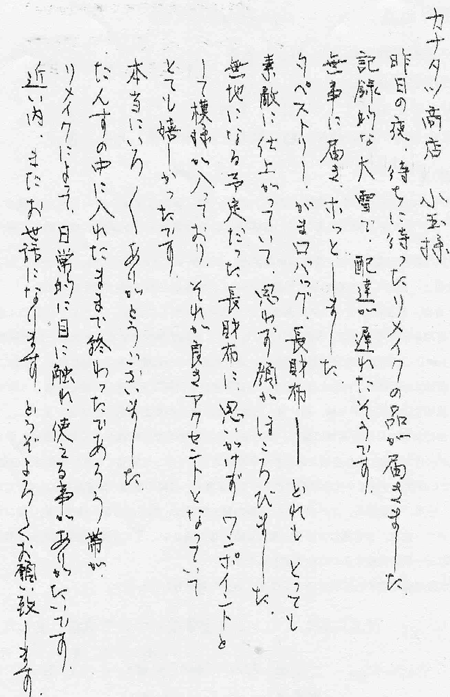 カナタツ商店 小玉様
昨日の夜、待ちに待ったリメイクの品が届きました
記録的な大雪で、配達が遅れたそうです。
無事に届き、ホッとしました
タペストリー、がま口バッグ、長財布――どれもとっても
素敵に仕上がっていて、思わず顔がほころびました。
無地になる予定だった長財布に、思いがけず ワンポイントと
して模様が入っており、それが良きアクセントとなっていて
とても嬉しかったです。
本当にいろ〱ありがとうございました。
たんすの中に入れたままで終わったであろう 帯が
リメイクによって、日常的に目に触れ、使える事がありがたいです。
近い内、またお世話になります。どうぞよろしくお願い致します。